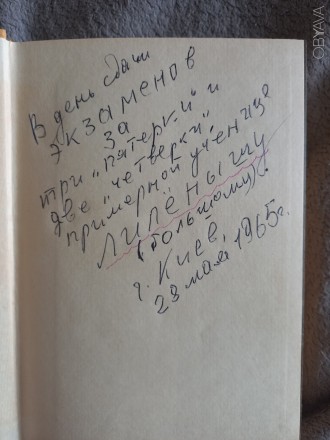 OBYAVA
В день сдачи
экзаменов
за
три „пятерки" и
две „четверки",
примерной ученице
ЛИЛЁНЫШУ
(большому).
г. Киев,
28 мая 1965г.